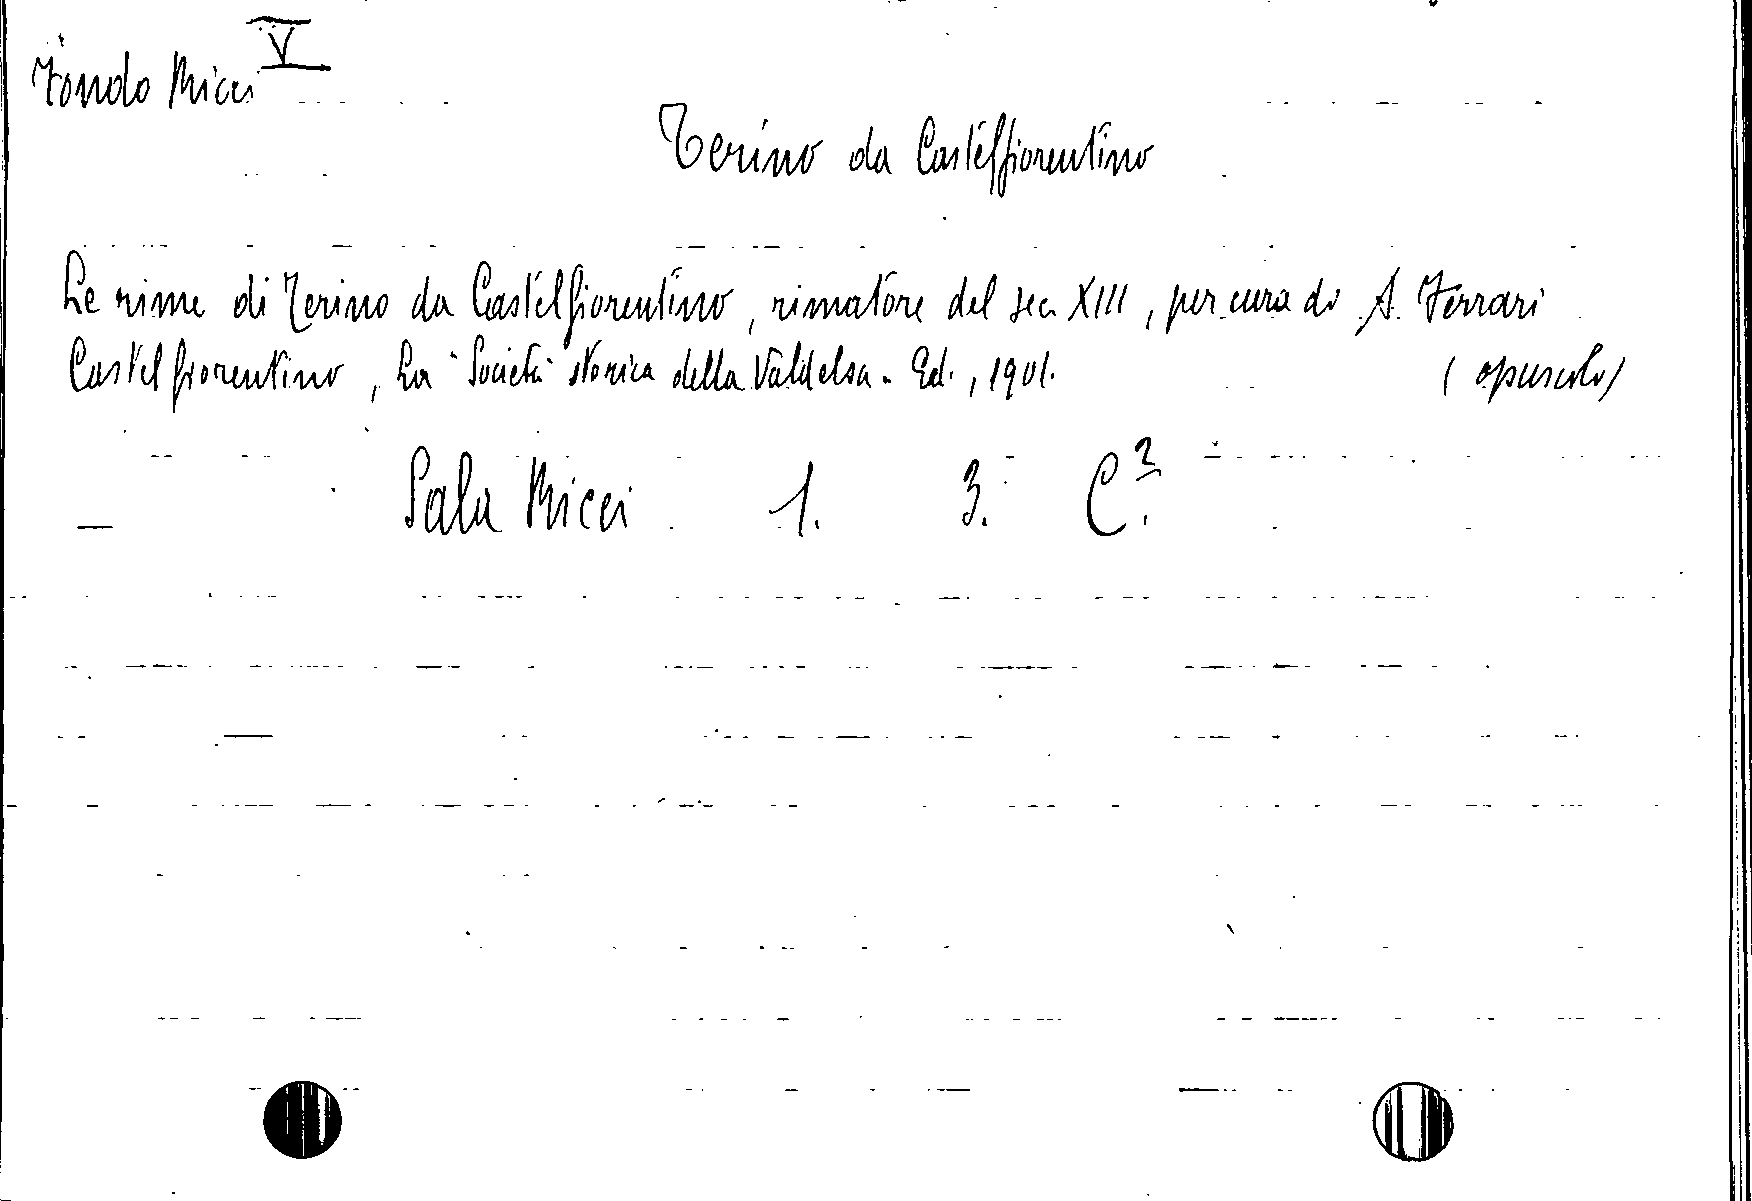 Fondo Ricci V
Terino da Castelfiorentino
Le rime di Terino da Castelfiorentino, rimatore del sec XIII, per cura di A. Ferrari
Castelfiorentino, La Società storica della Valdelsa. Ed., 1901. (opuscolo)
Sala Ricci 1. 3. C².